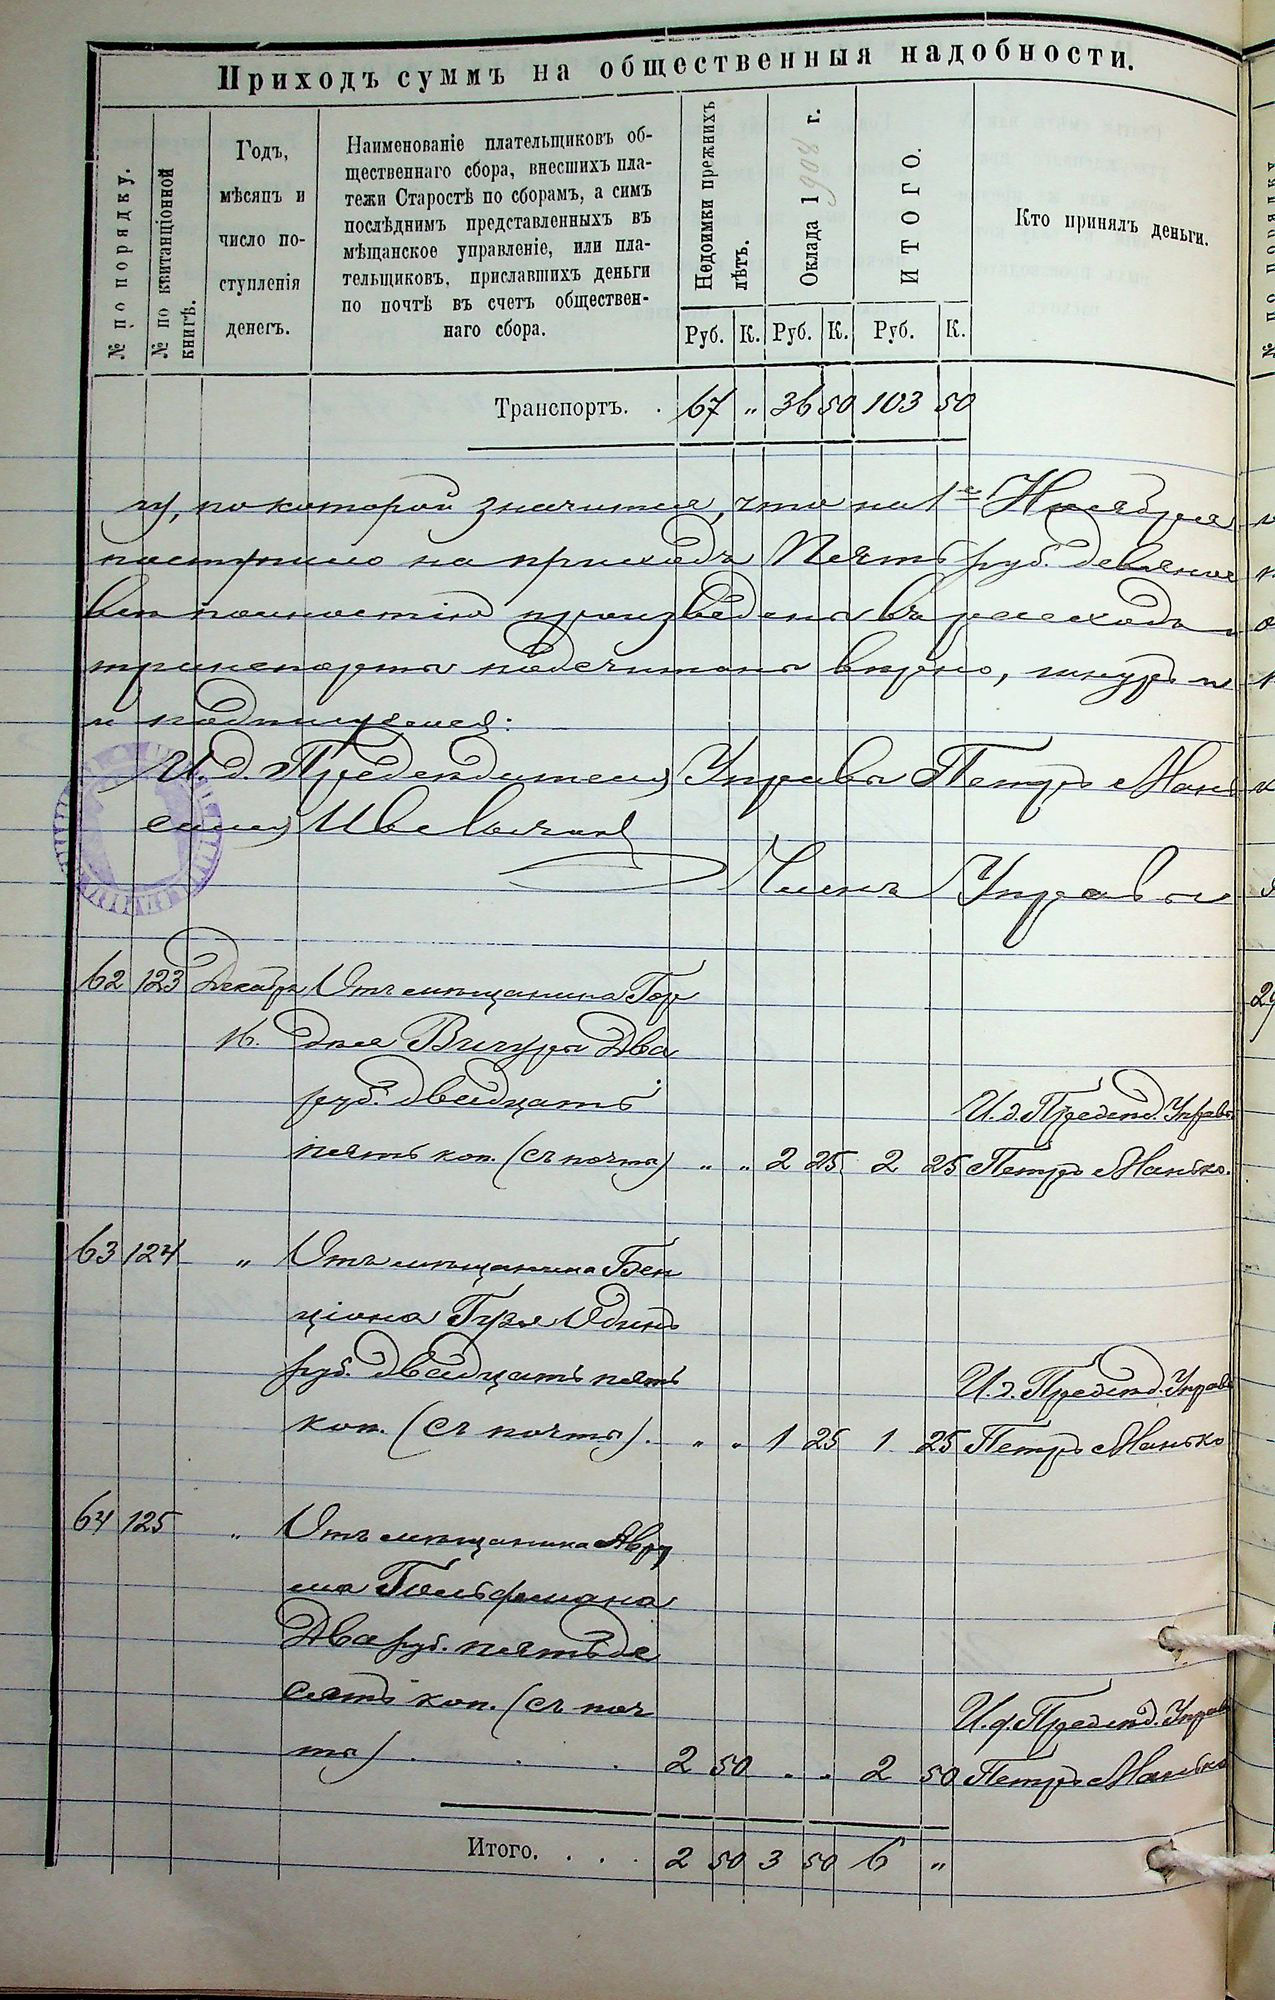 Приходъ суммъ на общественныя надобности.
№ по порядку.
№ по квитанціонной книгѣ.
Годъ,
мѣсяцъ и
число по-
ступленія
денегъ.
Наименованіе плательщиковъ об-
щественнаго сбора, внесшихъ пла-
тежи Старостѣ по сборамъ, а симъ
послѣднимъ представленныхъ въ
мѣщанское управленіе, или пла-
тельщиковъ, приславшихъ деньги
по почтѣ въ счетъ обществен-
наго сбора.
Недоимки прежнихъ лѣтъ.
Оклада 1908 г.
ИТОГО.
Кто принялъ деньги.
Руб. К. Руб. К. Руб. К.
Транспортъ. . 67 „ 36 50 103 50
гу, по которой значится, что на 1е Ноября
поступило на приходъ Пять руб. девяно
полностію произведены въ расходъ
транспорты подсчитаны вѣрно, шнуръ и
и подписуемся:
И. д. Предсѣдателя Управы Петръ Мань
Членъ Управы
62 123 Декабря Отъ мѣщанина Гор
16. дѣя Вичуры Два
руб. двадцать
пять коп. (съ почты) „ „ 2 25 2 25
И. д. Предсѣд. Управы
Петръ Манько.
63 124 „ Отъ мѣщанина Бен
ціона Гузя Одинъ
руб. двадцать пять
коп. (съ почты). „ „ 1 25 1 25
И. д. Предсѣд. Управы
Петръ Манько
64 125 „ Отъ мѣщанина Авру
ма Гольфмана
Два руб. пятьде
сятъ коп. (съ поч
ты) . . . 2 50 „ „ 2 50
И. д. Предсѣд. Управы
Петръ Манько
Итого. . . . 2 50 3 50 6 „